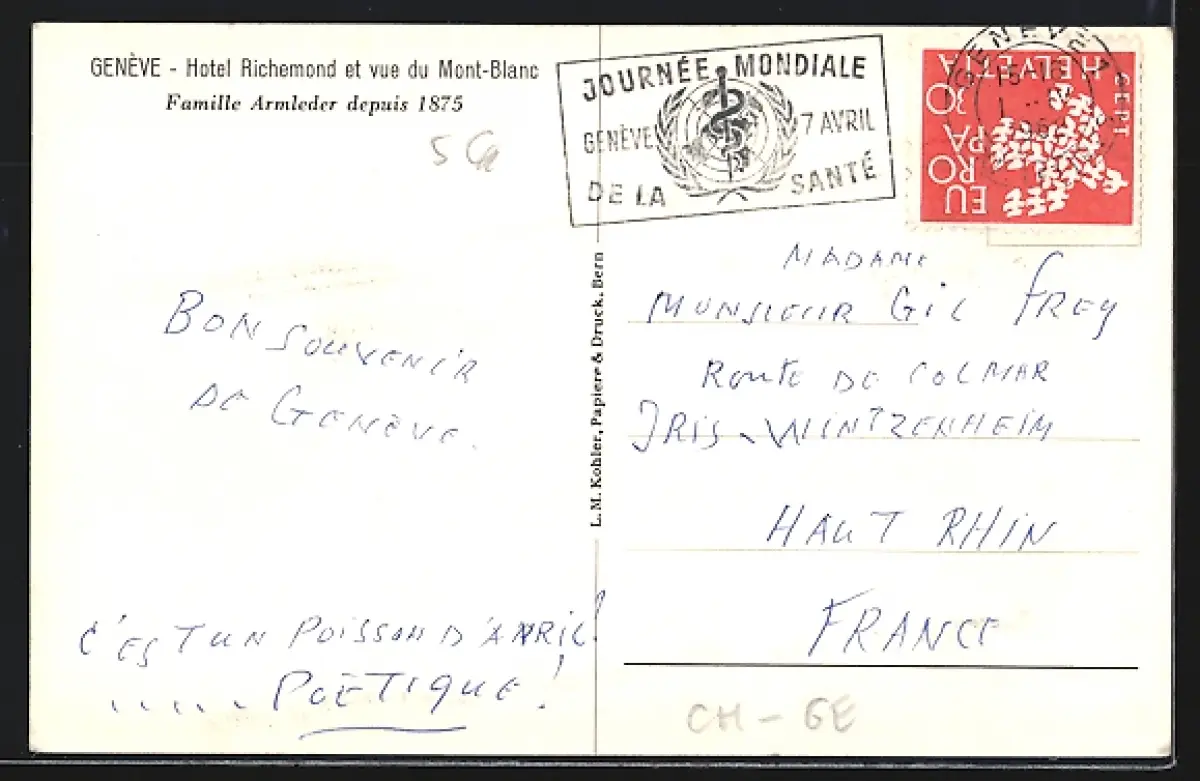 GENÈVE - Hotel Richemond et vue du Mont-Blanc
Famille Armleder depuis 1875
BON SOUVENIR
DE GENÈVE.
C'EST UN POISSON D'AVRIL!
...... POÈTIQUE!
L. M. Kohler, Papiere & Druck, Bern
JOURNÉE MONDIALE
GENÈVE 7 AVRIL
DE LA SANTÉ
GENÈVE
CEPT
HELVETIA
30
EUROPA
MADAME
MONSIEUR GIL FREY
ROUTE DE COLMAR
IRIS - WINTZENHEIM
HAUT RHIN
FRANCE
CH - GE